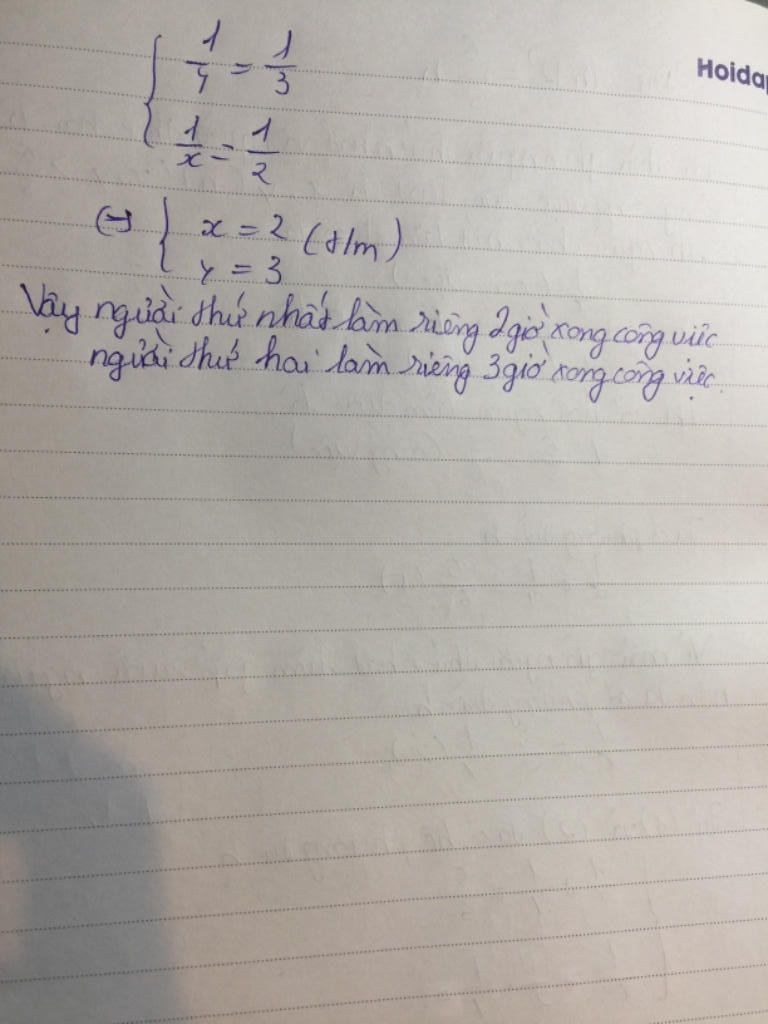 Hoidap
1/y = 1/3
1/x = 1/2
(=) { x = 2 (t/m)
y = 3
Vậy người thứ nhất làm riêng 2 giờ xong công việc
người thứ hai làm riêng 3 giờ xong công việc.